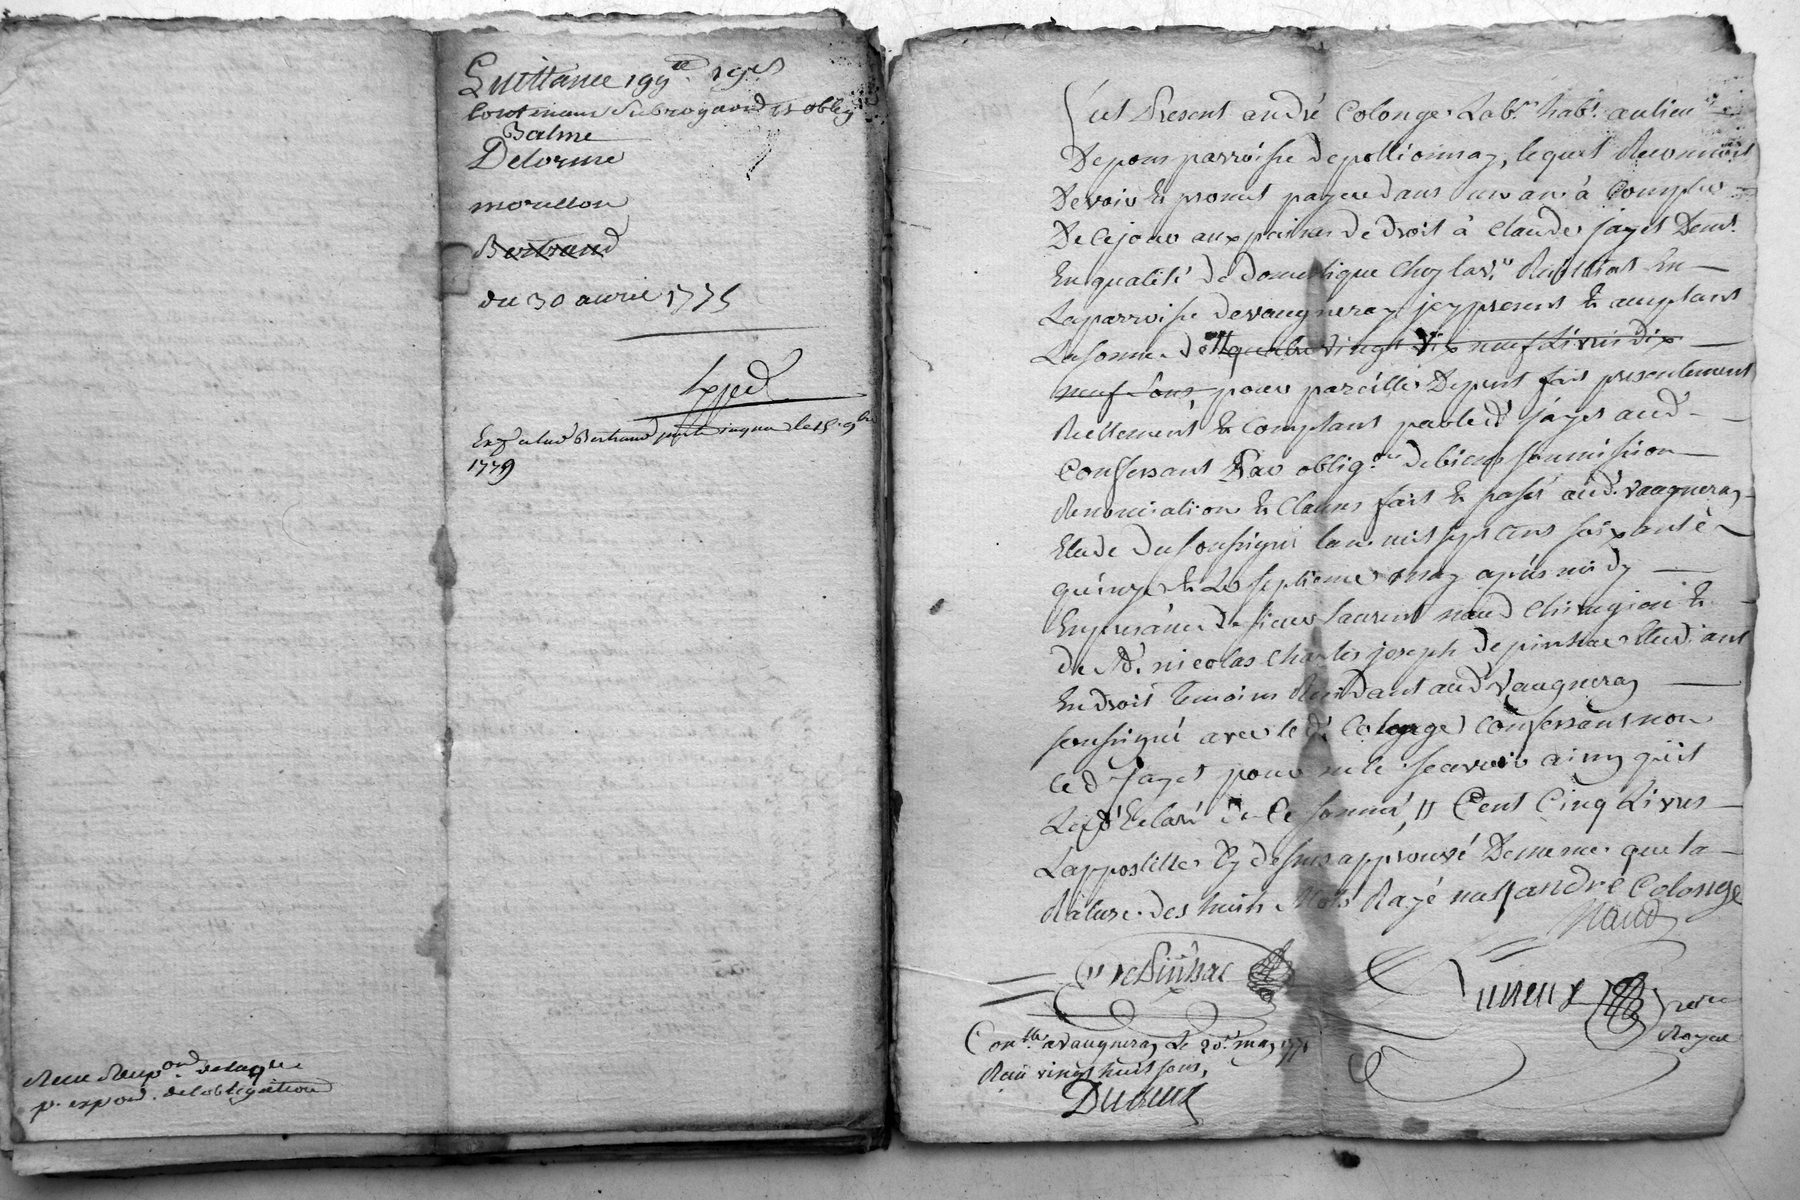 Quittance 199lt 19s
Contenant Subrogaond et oblig
Balme
Delorme
morellon
Bertrand
du 30 avril 1775
Expd
Exp. a lad Bertrand le 15 9bre
1779
Receu
pr. expond. de l'obligation
Fut Present andré Colonge Labr. habt. au lieu
De pom parroisse de pollionnay, lequel Reconnoit
Devoir et promet payer dans un an à Compter
De Ce jour aux peines de droit à Claude jayet Demt.
En qualité de domestique chez la ve. En
La parroisse de vaugneray jcy present et acceptant
La somme de quatre vingt dix neuf Livres dix
neuf sous pour pareille Depret fait presentement
Reellement et Comptant par led jayet aud
Confessant Par obligon. de biens soumission
Renonciation et Clauses fait et passé aud. vaugneray
Etude du soussigné l'an mil sept cens soixante
quinze et Le septieme may après midy
En presence de sieur Laurent naud Chirurgien et
de Sr. nicolas Charles joseph de pinhac Etudiant
En droit Temoins Residant aud Vaugneray
soussigné avec led. Colonge Confessant non
led jayet pour ne le scavoir ainsy qu'il
L'a declaré de Ce sommé, // Cent Cinq Livres
L'appostille Cy dessus approuvé De meme que la
Rature des huit Mots Rayé nuls andré Colonge
Naud
De Pinhac
Dureux
nore
Royal
Conllé. a vaugneray Le 20e. may 1775
Receu vingt huit sous,
Dureux